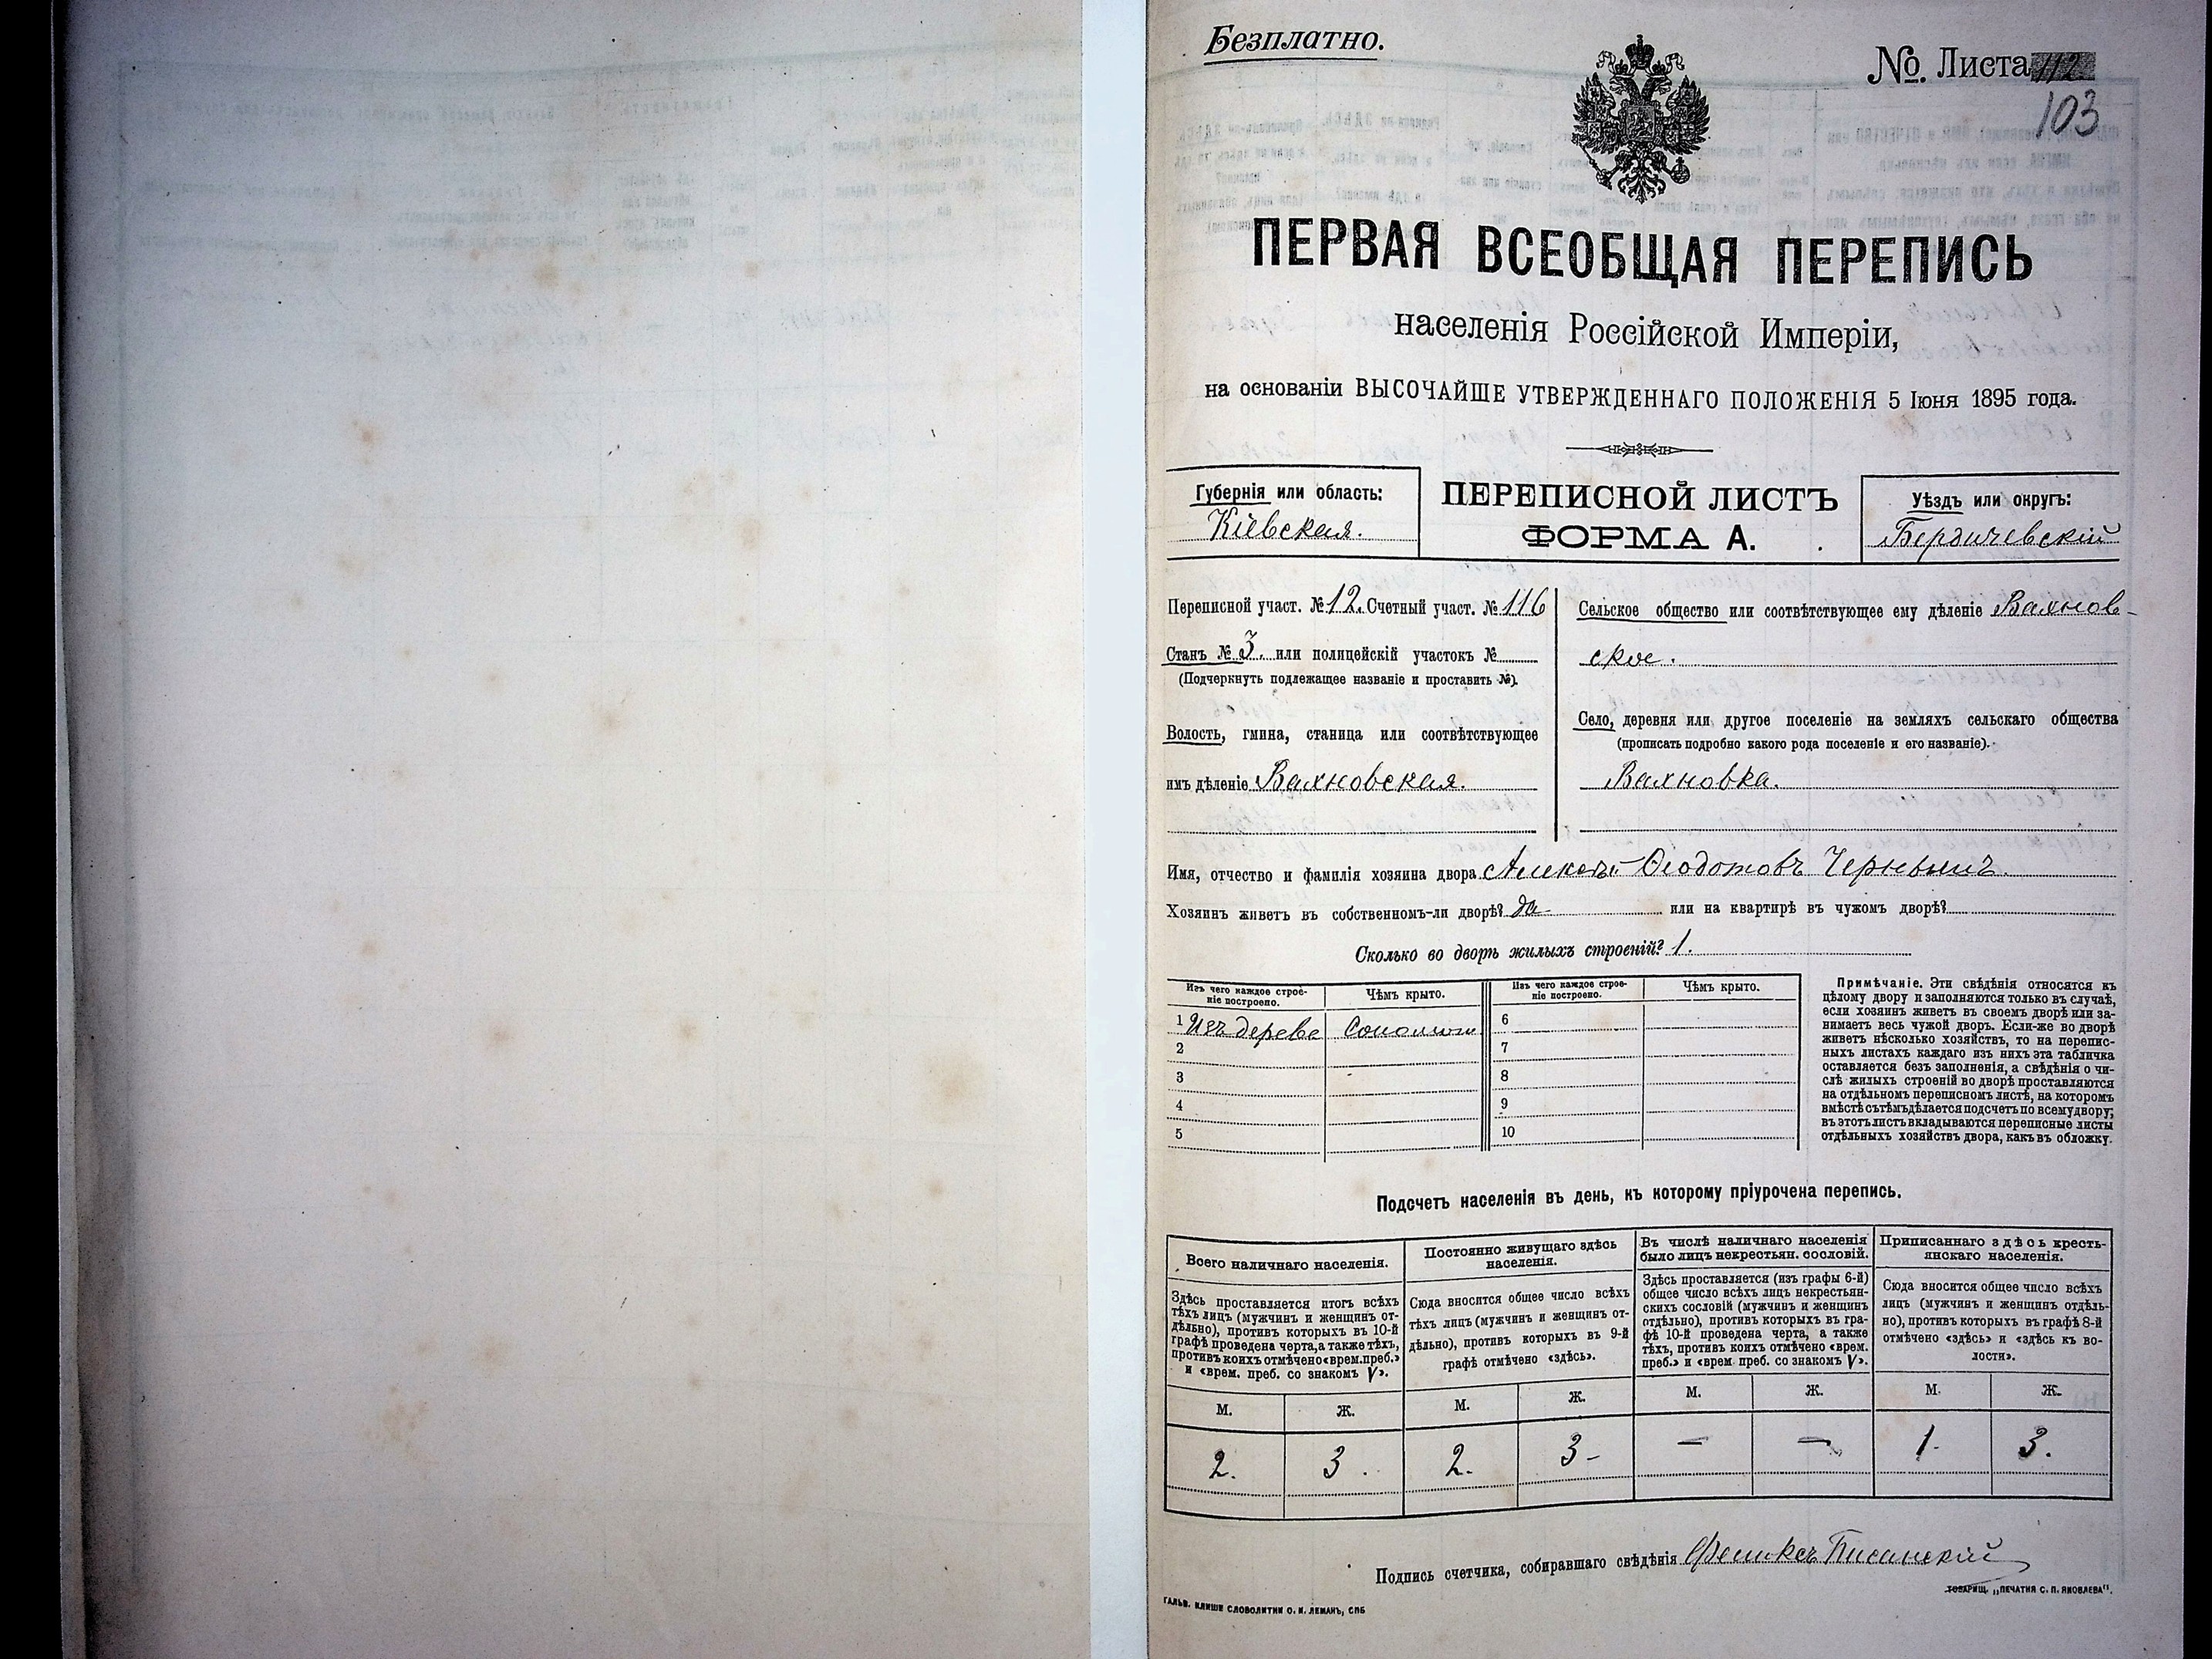 Безплатно.
№ Листа 112
103
ПЕРВАЯ ВСЕОБЩАЯ ПЕРЕПИСЬ
населенія Россійской Имперіи,
на основаніи ВЫСОЧАЙШЕ УТВЕРЖДЕННАГО ПОЛОЖЕНІЯ 5 Іюня 1895 года.
Губернія или область:
Кіевская.
ПЕРЕПИСНОЙ ЛИСТЪ
ФОРМА А.
Уѣздъ или округъ:
Бердичевскій
Переписной участ. № 12. Счетный участ. № 116
Станъ № 3. или полицейскій участокъ №
(Подчеркнуть подлежащее названіе и проставить №).
Волость, гмина, станица или соотвѣтствующее
имъ дѣленіе Вахновская.
Сельское общество или соотвѣтствующее ему дѣленіе Вахнов-
ское.
Село, деревня или другое поселеніе на земляхъ сельскаго общества
(прописать подробно какого рода поселеніе и его названіе).
Вахновка.
Имя, отчество и фамилія хозяина двора Алексѣй Ѳеодотовъ
Хозяинъ живетъ въ собственномъ-ли дворѣ? да или на квартирѣ въ чужомъ дворѣ?
Сколько во дворѣ жилыхъ строеній? 1.
Изъ чего каждое строе-
ніе построено.
Чѣмъ крыто.
Изъ чего каждое строе-
ніе построено.
Чѣмъ крыто.
1 Изъ дерева Соломою
2
3
4
5
6
7
8
9
10
Примѣчаніе. Эти свѣдѣнія относятся къ
цѣлому двору и заполняются только въ случаѣ,
если хозяинъ живетъ въ своемъ дворѣ или за-
нимаетъ весь чужой дворъ. Если-же во дворѣ
живетъ нѣсколько хозяйствъ, то на перепис-
ныхъ листахъ каждаго изъ нихъ эта табличка
оставляется безъ заполненія, а свѣдѣнія о чи-
слѣ жилыхъ строеній во дворѣ проставляются
на отдѣльномъ переписномъ листѣ, на которомъ
вмѣстѣ съ тѣмъ дѣлается подсчетъ по всему двору;
въ этотъ листъ вкладываются переписные листы
отдѣльныхъ хозяйствъ двора, какъ въ обложку.
Подсчетъ населенія въ день, къ которому пріурочена перепись.
Всего наличнаго населенія.
Здѣсь проставляется итогъ всѣхъ
тѣхъ лицъ (мужчинъ и женщинъ от-
дѣльно), противъ которыхъ въ 10-й
графѣ проведена черта, а также тѣхъ,
противъ коихъ отмѣчено «врем. преб.»
и «врем. преб. со знакомъ V».
М. Ж.
2. 3.
Постоянно живущаго здѣсь
населенія.
Сюда вносится общее число всѣхъ
тѣхъ лицъ (мужчинъ и женщинъ от-
дѣльно), противъ которыхъ въ 9-й
графѣ отмѣчено «здѣсь».
М. Ж.
2. 3-
Въ числѣ наличнаго населенія
было лицъ некрестьян. сословій.
Здѣсь проставляется (изъ графы 6-й)
общее число всѣхъ лицъ некрестьян-
скихъ сословій (мужчинъ и женщинъ
отдѣльно), противъ которыхъ въ гра-
фѣ 10-й проведена черта, а также
тѣхъ, противъ коихъ отмѣчено «врем.
преб.» и «врем. преб. со знакомъ V».
М. Ж.
— —
Приписаннаго здѣсь кресть-
янскаго населенія.
Сюда вносится общее число всѣхъ
лицъ (мужчинъ и женщинъ отдѣль-
но), противъ которыхъ въ графѣ 8-й
отмѣчено «здѣсь» и «здѣсь къ во-
лости».
М. Ж.
1. 3.
Подпись счетчика, собиравшаго свѣдѣнія Феликсъ Писанскій
ТОВАРИЩ. „ПЕЧАТНЯ С. П. ЯКОВЛЕВА".
ГАЛЬВ. КЛИШЕ СЛОВОЛИТНИ О. И. ЛЕМАНЪ, СПБ